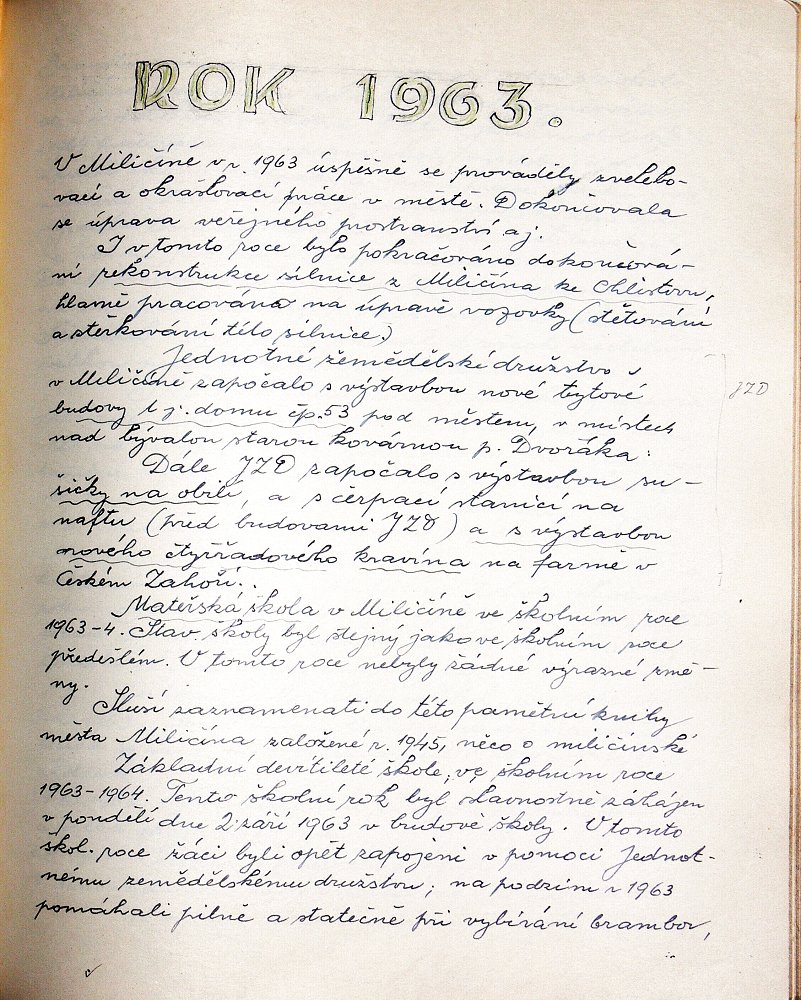 ROK 1963.
V Miličíně v r. 1963 úspěšně se prováděly zvelebo-
vací a okrašlovací práce v městě. Dokončovala
se úprava veřejného prostranství aj.
I v tomto roce bylo pokračováno dokončová-
ní rekonstrukce silnice z Miličína ke Chlístovu,
hlavně pracováno na úpravě vozovky (štětování
a štěrkování této silnice.)
Jednotné zemědělské družstvo
v Miličíně započalo s výstavbou nové bytové
budovy t. j. domu čp. 53 pod městem, v místech
nad bývalou starou kovárnou p. Dvořáka.
JZD
Dále JZD započalo s výstavbou su-
šičky na obilí, a s čerpací stanicí na
naftu (před budovami JZD) a s výstavbou
nového čtyřřadového kravína na farmě v
Českém Zahoří..
Mateřská škola v Miličíně ve školním roce
1963-4. Stav školy byl stejný jako ve školním roce
předešlém. V tomto roce nebyly žádné výrazné změ-
ny.
Sluší zaznamenati do této pamětní knihy
města Miličína založené r. 1945, něco o miličínské
Základní devítileté škole, ve školním roce
1963-1964. Tento školní rok byl slavnostně zahájen
v pondělí dne 2. září 1963 v budově školy. V tomto
škol. roce žáci byli opět zapojeni v pomoci Jednot-
nému zemědělskému družstvu; na podzim r 1963
pomáhali pilně a statečně při vybírání brambor,